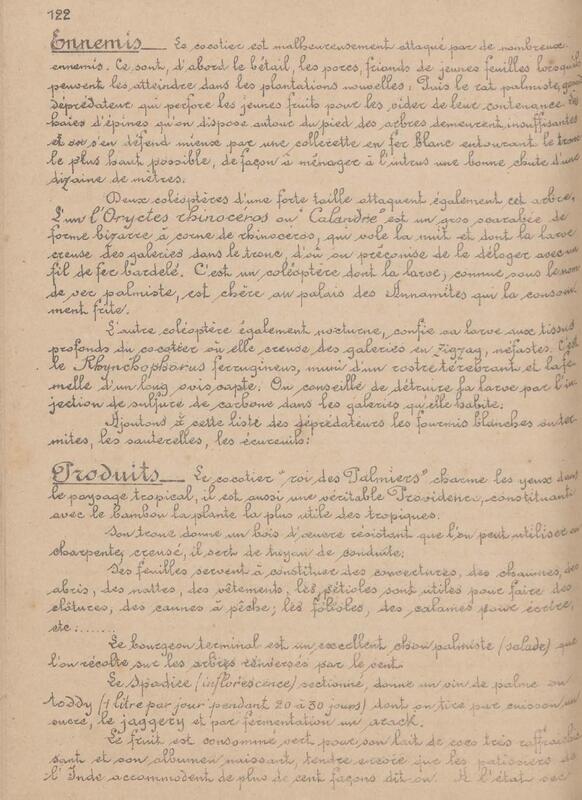 122
Ennemis_ Le cocotier est malheureusement attaqué par de nombreux
ennemis. Ce sont, d'abord le bétail, les porcs, friands de jeunes feuilles lorsqu'ils
peuvent les atteindre dans les plantations nouvelles; Puis le rat palmiste, grand
déprédateur qui perfore les jeunes fruits pour les vider de leur contenance.
haies d'épines qu'on dispose autour du pied des arbres demeurent insuffisantes
et on s'en défend mieux par une collerette en fer blanc entourant le tronc
le plus haut possible, de façon à ménager à l'intrus une bonne chute d'une
dizaine de mètres.
Deux coléoptères d'une forte taille attaquent également cet arbre.
L'un l'Oryctes rhinoceros ou "Calandre" est un gros scarabée de
forme bizarre à corne de rhinocéros, qui vole la nuit et dont la larve
creuse des galeries dans le tronc, d'où on préconise de le déloger avec un
fil de fer bardelé. C'est un coléoptère dont la larve, connue sous le nom
de ver palmiste, est chère au palais des Annamites qui la consom
ment frite.
L'autre coléoptère également nocturne, confie sa larve aux tissus
profonds du cocotier où elle creuse des galeries en zigzag, néfastes. C'est
le Rhynchophorus ferrugineus, muni d'un rostre térébrant et la fe-
melle d'un long oviscapte. On conseille de détruire la larve par l'in
jection de sulfure de carbone dans les galeries qu'elle habite.
Ajoutons à cette liste des déprédateurs les fourmis blanches ou ter-
mites, les sauterelles, les écureuils.
Produits_ Le cocotier "roi des Palmiers" charme les yeux dans
le paysage tropical, il est aussi une véritable Providence, constituant
avec le bambou la plante la plus utile des tropiques.
Son tronc donne un bois d'œuvre résistant que l'on peut utiliser en
charpente, creusé, il sert de tuyau de conduite.
Ses feuilles servent à constituer des couvertures, des chaumes, des
abris, des nattes, des vêtements. les pétioles sont utiles pour faire des
clôtures, des cannes à pêche; les folioles, des calames pour écrire,
etc......
Le bourgeon terminal est un excellent chou palmiste (salade) que
l'on récolte sur les arbres renversés par le vent.
Le Spadice (inflorescence) sectionné, donne un vin de palme ou
toddy (1 litre par jour pendant 20 à 30 jours) dont on tire par cuisson un
sucre, le jaggery et par fermentation un arack.
Le fruit est consommé vert pour son lait de coco très rafraîchis
sant et son albumen naissant, tendre encore que les patissiers de
l'Inde accommodent de plus de cent façons dit-on. A l'état sec